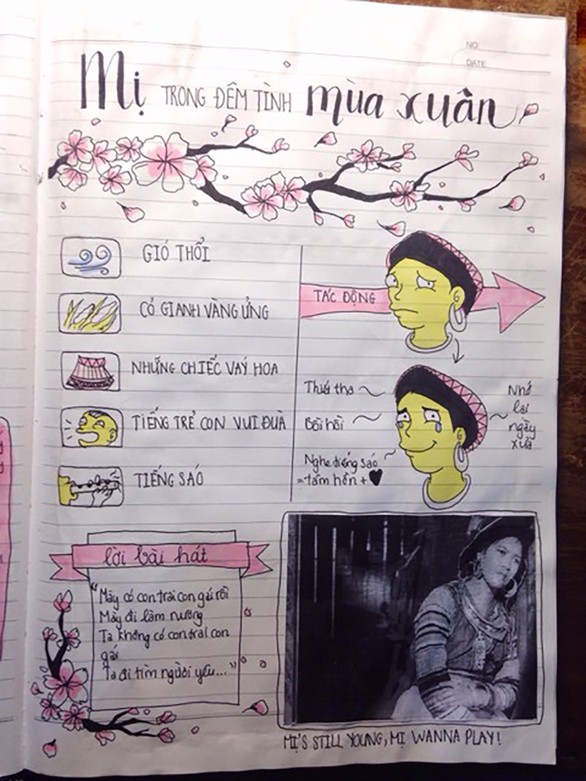 NO
DATE
Mị TRONG ĐÊM TÌNH mùa xuân
GIÓ THỔI
CỎ GIANH VÀNG ỬNG
NHỮNG CHIẾC VÁY HOA
TIẾNG TRẺ CON VUI ĐÙA
TIẾNG SÁO
TÁC ĐỘNG
Thiết tha
Bồi hồi
Nghe tiếng sáo
= tâm hồn + ♥
Nhớ
lại
ngày
xưa
lời bài hát
"Mày có con trai con gái rồi
Mày đi làm nương
Ta không có con trai con
gái
Ta đi tìm người yêu..."
MỊ'S STILL YOUNG, MỊ WANNA PLAY!